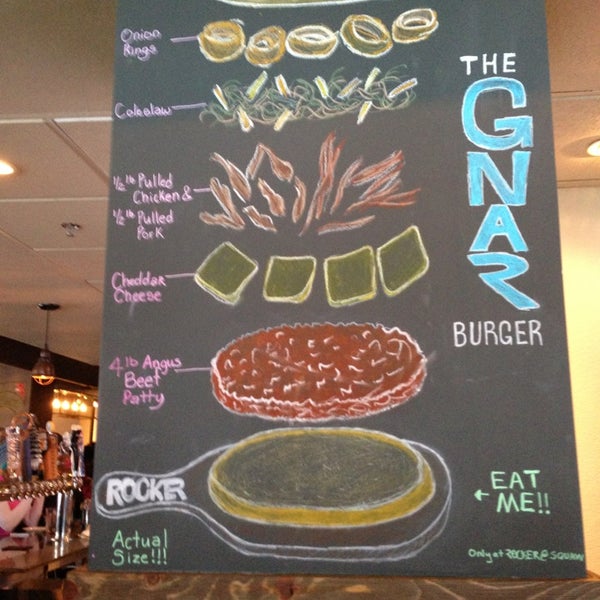 Onion
Rings
THE
GNAR
BURGER
Coleslaw
1/2 lb Pulled
Chicken &
1/2 lb Pulled
Pork
Cheddar
Cheese
4 lb Angus
Beef
Patty
ROCKER
EAT
ME!!
Actual
Size!!!
Only at ROCKER@SQUAW